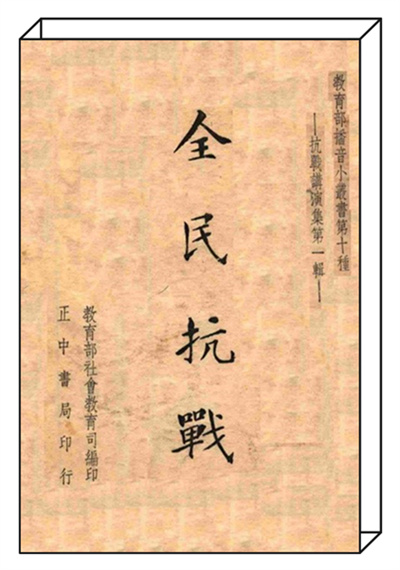 教育部播音小叢書第十種
—抗戰講演集第一輯—
全民抗戰
教育部社會教育司編印
正中書局印行